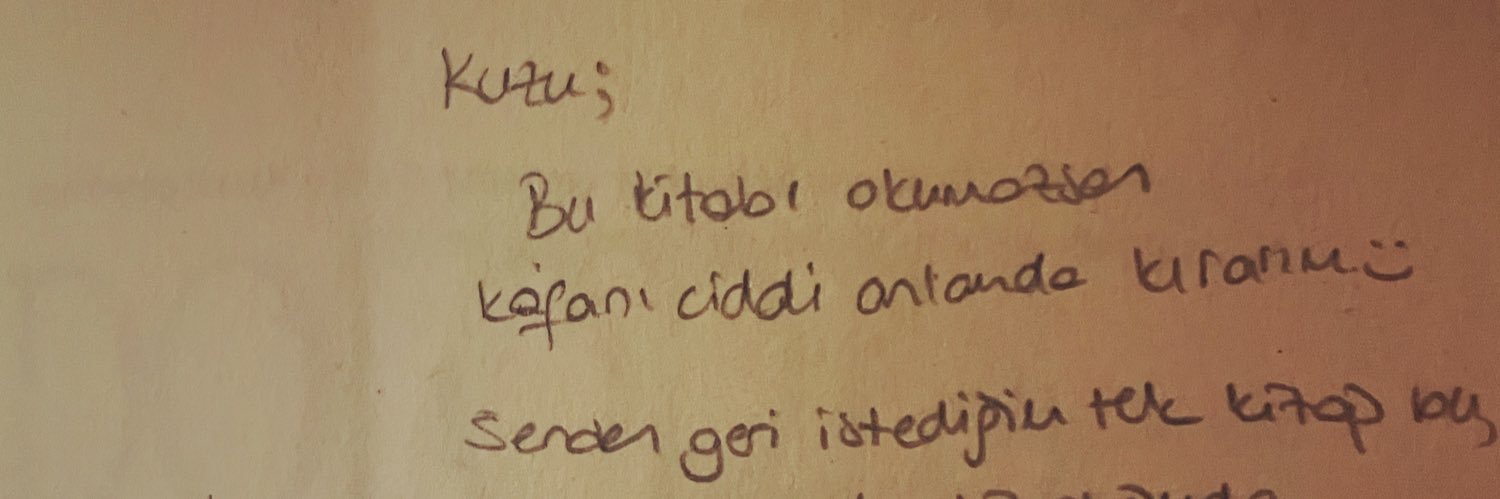 Kuzu;
Bu kitabı okumazsan
kafanı ciddi anlamda kırarım :)
Senden geri istediğim tek kitap bu,